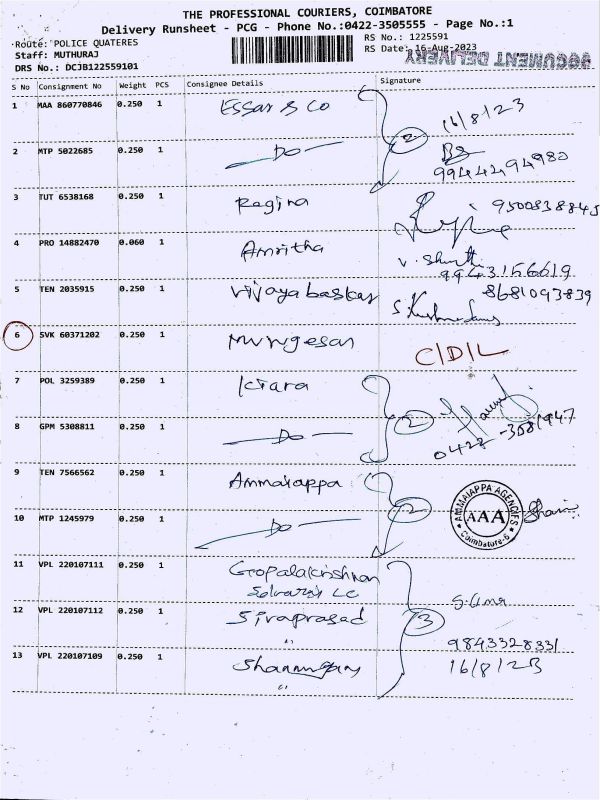 THE PROFESSIONAL COURIERS, COIMBATORE
Delivery Runsheet - PCG - Phone No.:0422-3505555 - Page No.:1
Route: POLICE QUATERES
RS No.: 1225591
Staff: MUTHURAJ
RS Date: 16-Aug-2023
DOCUMENT DELIVERY
DRS No.: DCJB122559101
S No Consignment No Weight PCS Consignee Details Signature
1 MAA 860770846 0.250 1 Essar & Co 16/8/23
2 MTP 5022685 0.250 1 — Do — 2 9944494980
3 TUT 6538168 0.250 1 Regina 9500838845
4 PRO 14882470 0.060 1 Amritha V. Shruthi 9943156619
5 TEN 2035915 0.250 1 Vijaya baskar 8681093839
6 SVK 60371202 0.250 1 Murugesan C/D/L
7 POL 3259389 0.250 1 Kiara
8 GPM 5308811 0.250 1 — Do — 2 0422-3581947
9 TEN 7566562 0.250 1 Ammaiappa
AMMAIAPPA AGENCIES
AAA
Coimbatore-6
10 MTP 1245979 0.250 1 — Do — 2
11 VPL 220107111 0.250 1 Gopalakrishnan
Selvaraj LC
12 VPL 220107112 0.250 1 Sivaprasad 3
"
9843328331
13 VPL 220107109 0.250 1 Shanmugam 16/8/23
"